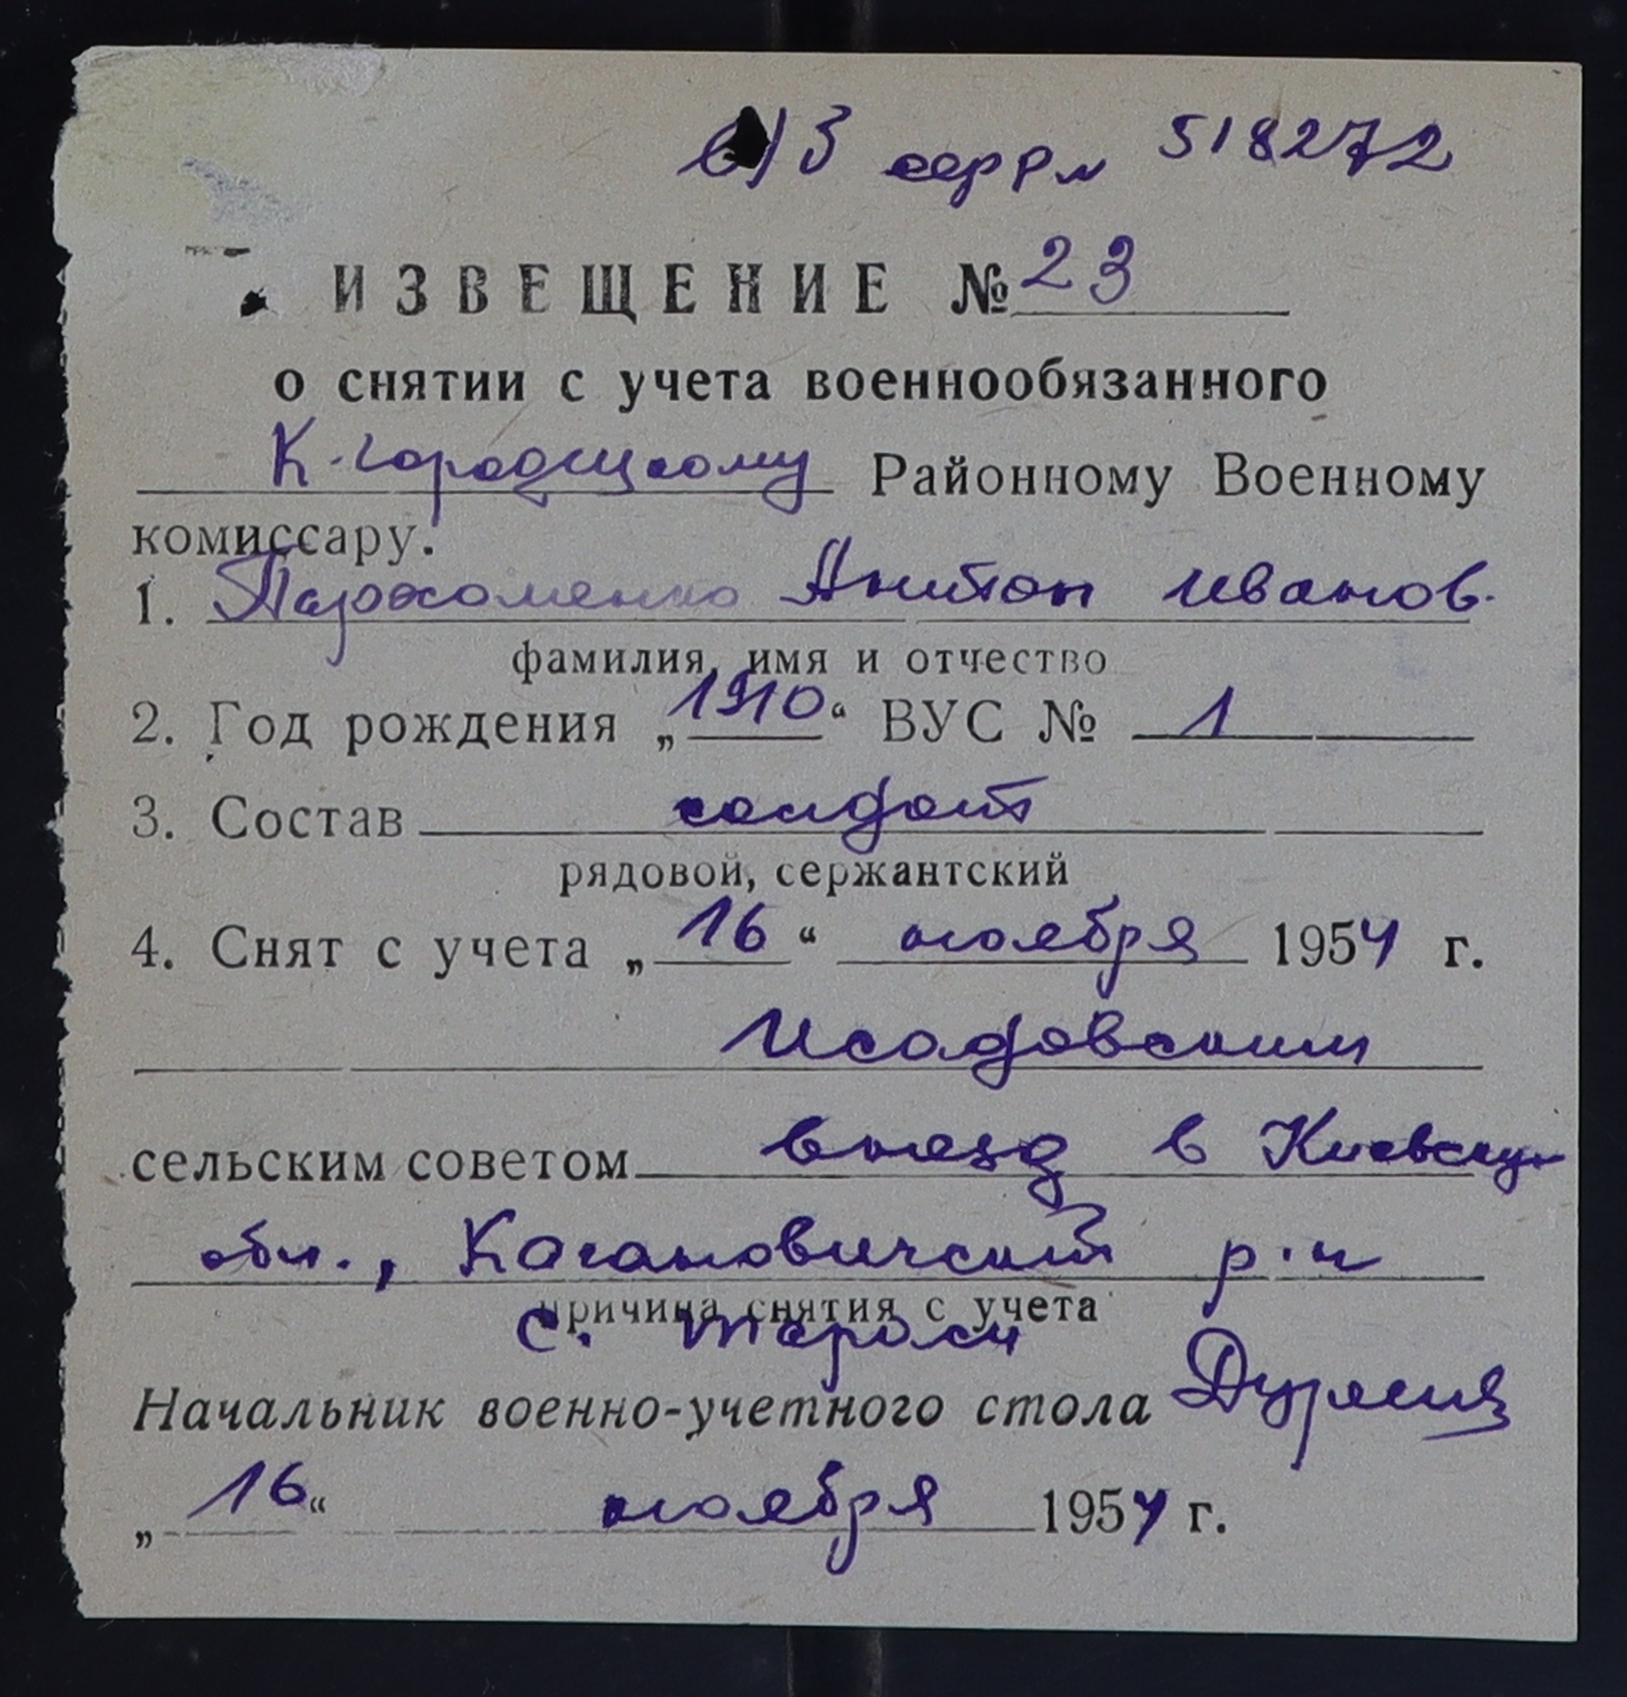 в/з сер РМ 518272
ИЗВЕЩЕНИЕ № 23
о снятии с учета военнообязанного
К-городцкому Районному Военному
комиссару.
1. Пархоменко Антон Иванов.
фамилия, имя и отчество
2. Год рождения „1910“ ВУС № 1
3. Состав солдат
рядовой, сержантский
4. Снят с учета „16“ ноября 1954 г.
Исадовским
сельским советом выезд в Киевскую
обл., Кагановический р-н
причина снятия с учета
с. Тараси
Начальник военно-учетного стола
„16“ ноября 1954 г.